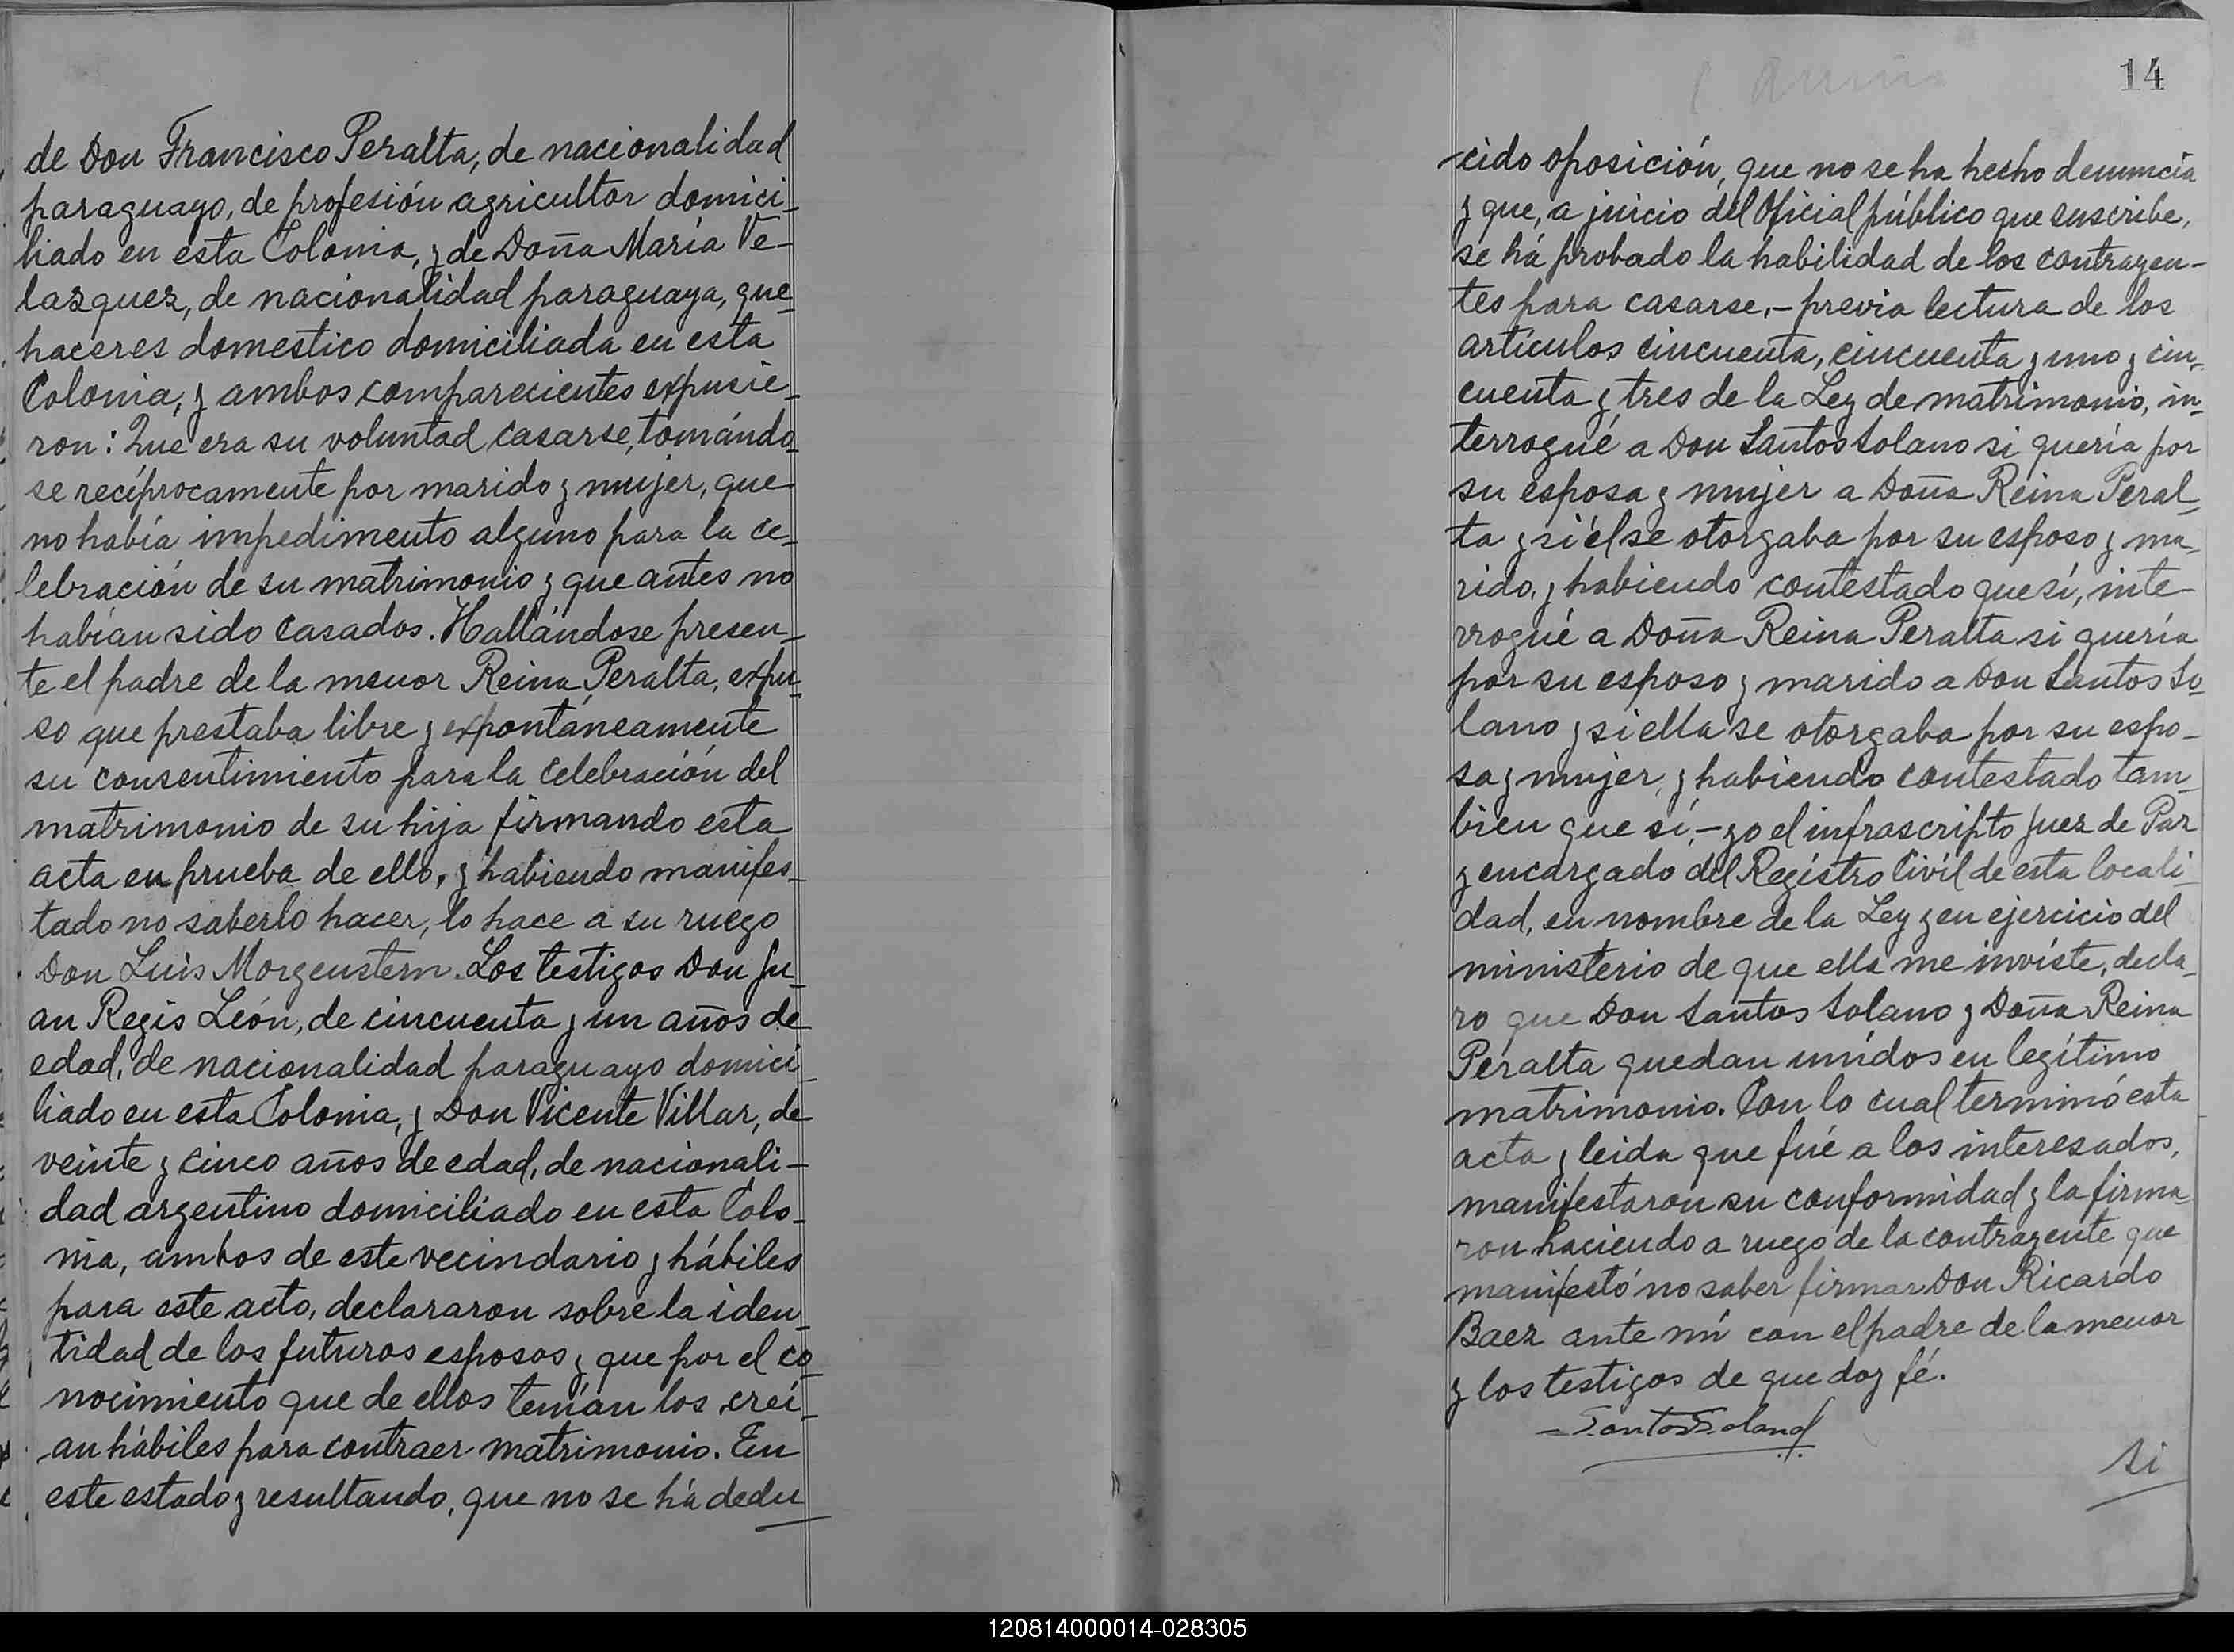 de Don Francisco Peralta, de nacionalidad
paraguayo, de profesión agricultor domici-
liado en esta Colonia, y de Doña María Ve-
lazquez, de nacionalidad paraguaya, que-
haceres domestico domiciliada en esta
Colonia, y ambos comparecientes expusie-
ron: Que era su voluntad casarse, tomándo-
se recíprocamente por marido y mujer, que
no había impedimento alguno para la ce-
lebración de su matrimonio y que antes no
habían sido casados. Hallándose presen-
te el padre de la menor Reina Peralta, expu-
so que prestaba libre y expontáneamente
su consentimiento para la celebración del
matrimonio de su hija firmando esta
acta en prueba de ello, y habiendo manifes-
tado no saberlo hacer, lo hace a su ruego
Don Luis Morgenstern. Los testigos Don Ju-
an Regis León, de cincuenta y un años de
edad, de nacionalidad paraguayo domici-
liado en esta Colonia, y Don Vicente Villar, de
veinte y cinco años de edad, de nacionali-
dad argentino domiciliado en esta Colo-
nia, ambos de este vecindario y hábiles
para este acto, declararon sobre la iden-
tidad de los futuros esposos y que por el co-
nocimiento que de ellos tenían los creí-
an hábiles para contraer matrimonio. En
este estado y resultando, que no se há dedu
14
-cido oposición, que no se ha hecho denuncia
y que, a juicio del Oficial público que suscribe,
se há probado la habilidad de los contrayen-
tes para casarse,- previa lectura de los
artículos cincuenta, cincuenta y uno y cin-
cuenta y tres de la Ley de matrimonio, in-
terrogué a Don Santos Solano si quería por
su esposa y mujer a Doña Reina Peral-
ta y si él se otorgaba por su esposo y ma-
rido, y habiendo contestado que sí, inte-
rrogué a Doña Reina Peralta si quería
por su esposo y marido a Don Santos So-
lano y si ella se otorgaba por su espo-
sa y mujer, y habiendo contestado tam-
bien que sí,- yo el infrascripto Juez de Paz
y encargado del Registro Civíl de esta locali-
dad, en nombre de la Ley y en ejercicio del
ministerio de que ella me inviste, decla-
ro que Don Santos Solano y Doña Reina
Peralta quedan unidos en legítimo
matrimonio. Con lo cual terminó esta
acta y leida que fué a los interesados,
manifestaron su conformidad y la firma-
ron haciendo a ruego de la contrayente que
manifestó no saber firmar Don Ricardo
Baez ante mí con el padre de la menor
y los testigos de que doy fé.
Santos Solano
Si
120814000014-028305